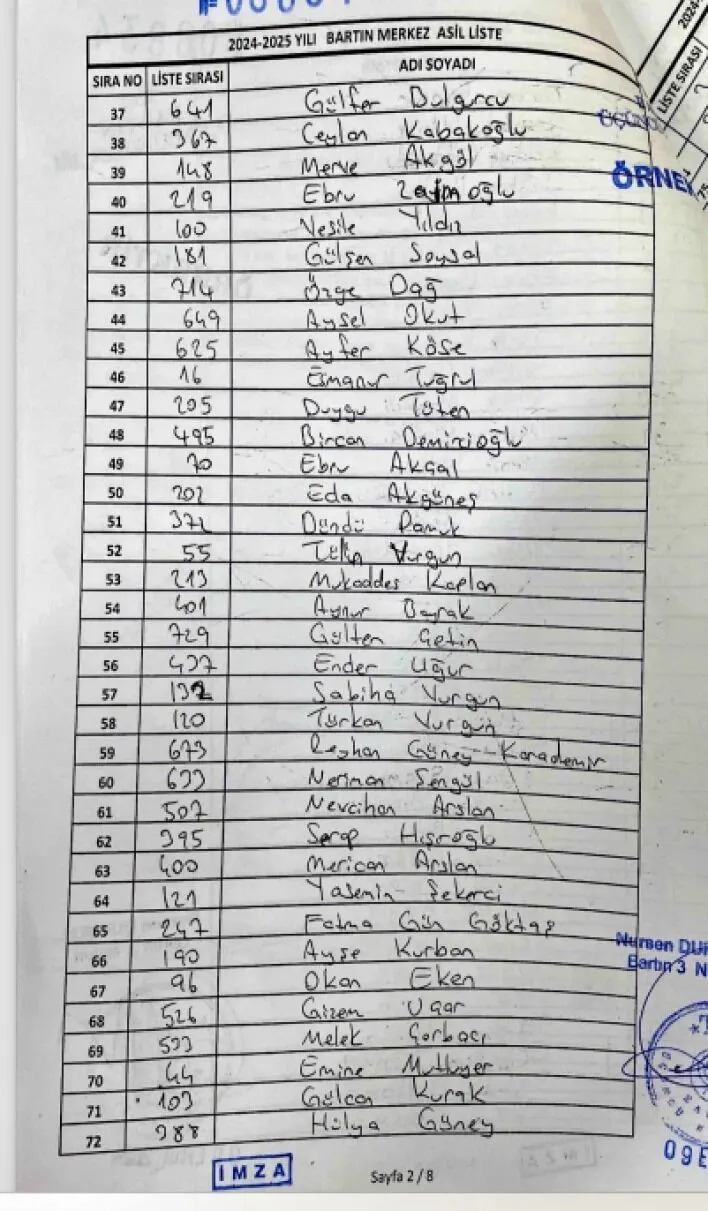 2024-2025 YILI BARTIN MERKEZ ASİL LİSTE
SIRA NO LİSTE SIRASI ADI SOYADI
37 641 Gülfer Bulgurcu
38 367 Ceylan Kabakoğlu
39 148 Merve Akgöl
40 219 Ebru
41 100 Vesile Yıldız
42 181 Gülşen Soysal
43 714 Özge Dağ
44 649 Aysel Okut
45 625 Ayfer Köse
46 16 Esmanur Tuğrul
47 205 Duygu Tüten
48 495 Bircan Demircioğlu
49 70 Ebru Akgal
50 202 Eda Akgüneş
51 372 Döndü Pamuk
52 55 Tülin Vurgun
53 213 Mukaddes Kaplan
54 401 Aynur Bayrak
55 729 Gülten Çetin
56 437 Ender Uğur
57 132 Sabiha Vurgun
58 120 Türkan Vurgun
59 673 Reyhan Güney Karademir
60 633 Neriman Şengül
61 507 Nevcihan Arslan
62 395 Serap Hışıroğlu
63 400 Merican Arslan
64 121 Yasemin Şekerci
65 247 Fatma Gün Göktaş
66 190 Ayşe Kurban
67 96 Okan Eken
68 526 Gizem Uçar
69 533 Melek Çorbacı
70 44 Emine Mutluyer
71 103 Gülcan Kurak
72 388 Hülya Güney
İMZA
Sayfa 2 / 8
2024-
LİSTE SIRASI
ÖRNE
Nursen
Bartın 3 N
09E